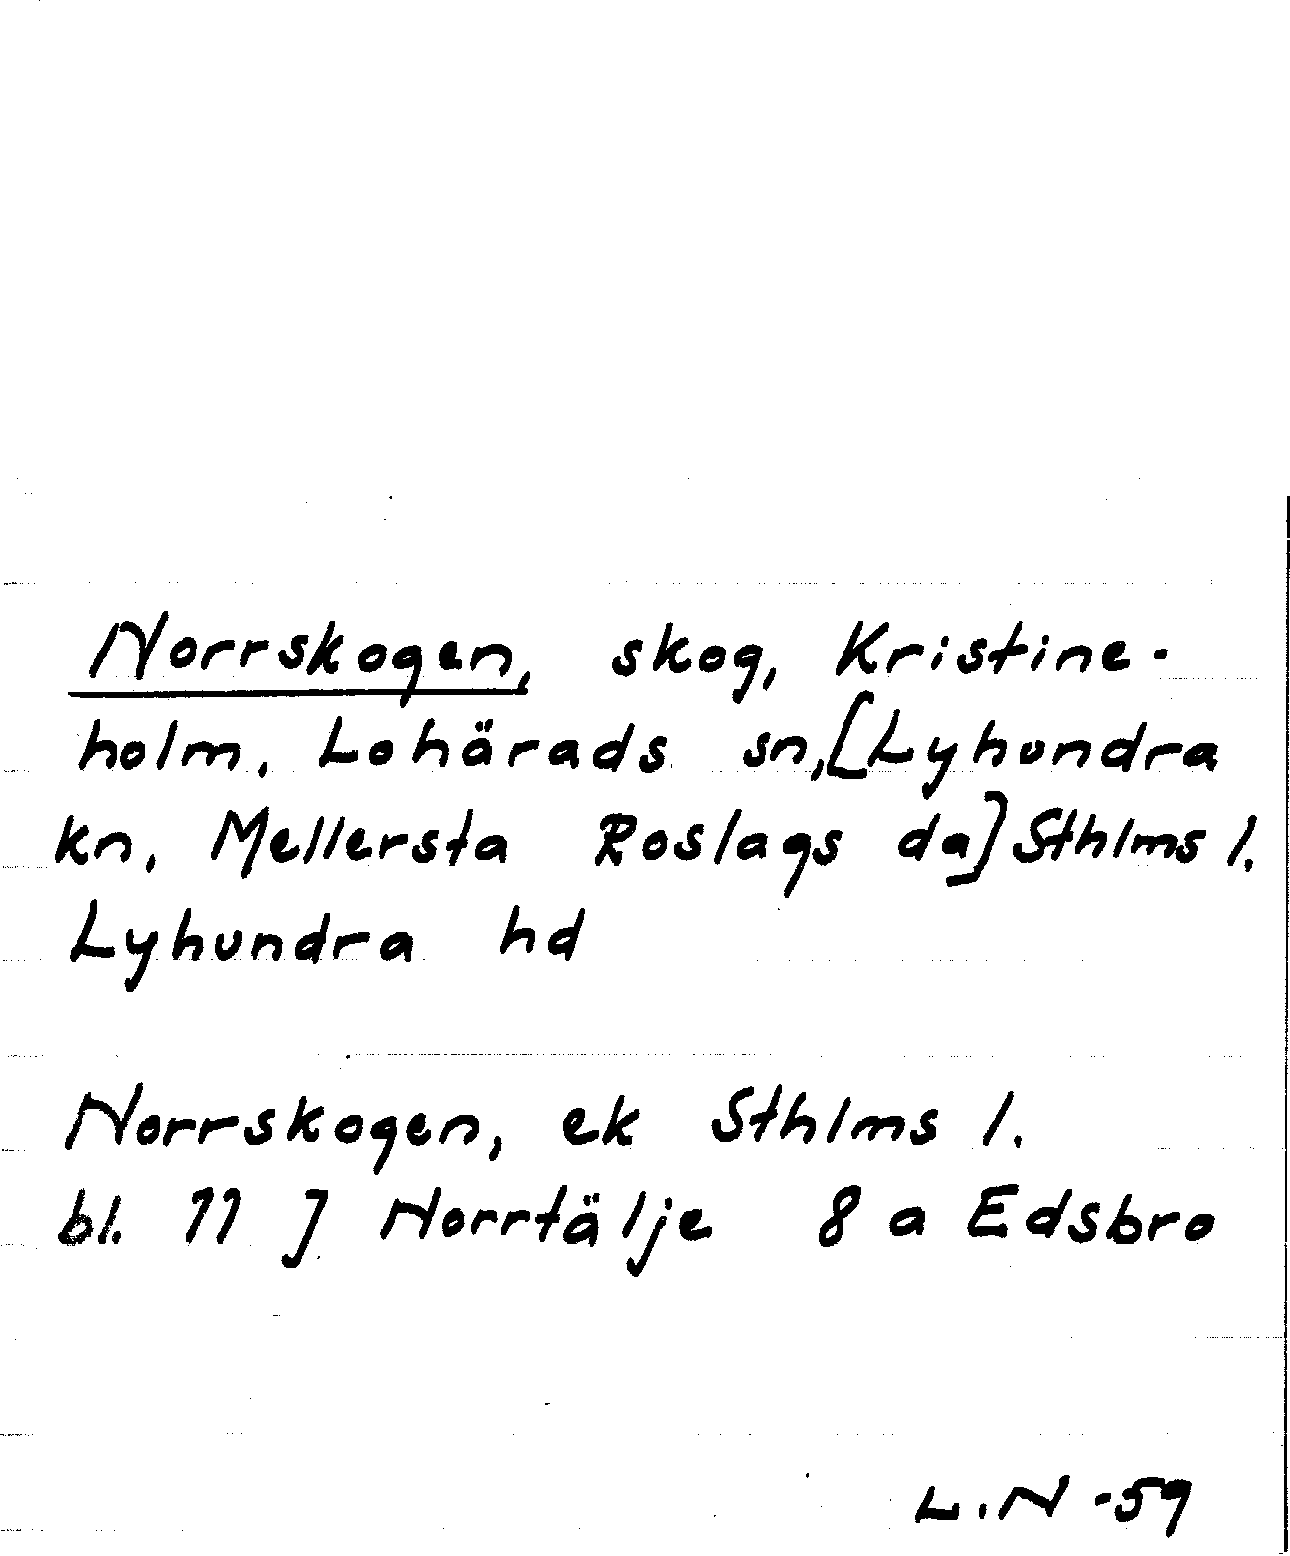 Norrskogen, skog, Kristine-
holm, Lohärads sn, [Lyhundra
kn, Mellersta Roslags da] Sthlms l.
Lyhundra hd
Norrskogen, ek Sthlms l.
bl. 11 J Norrtälje 8 a Edsbro
L.N -59